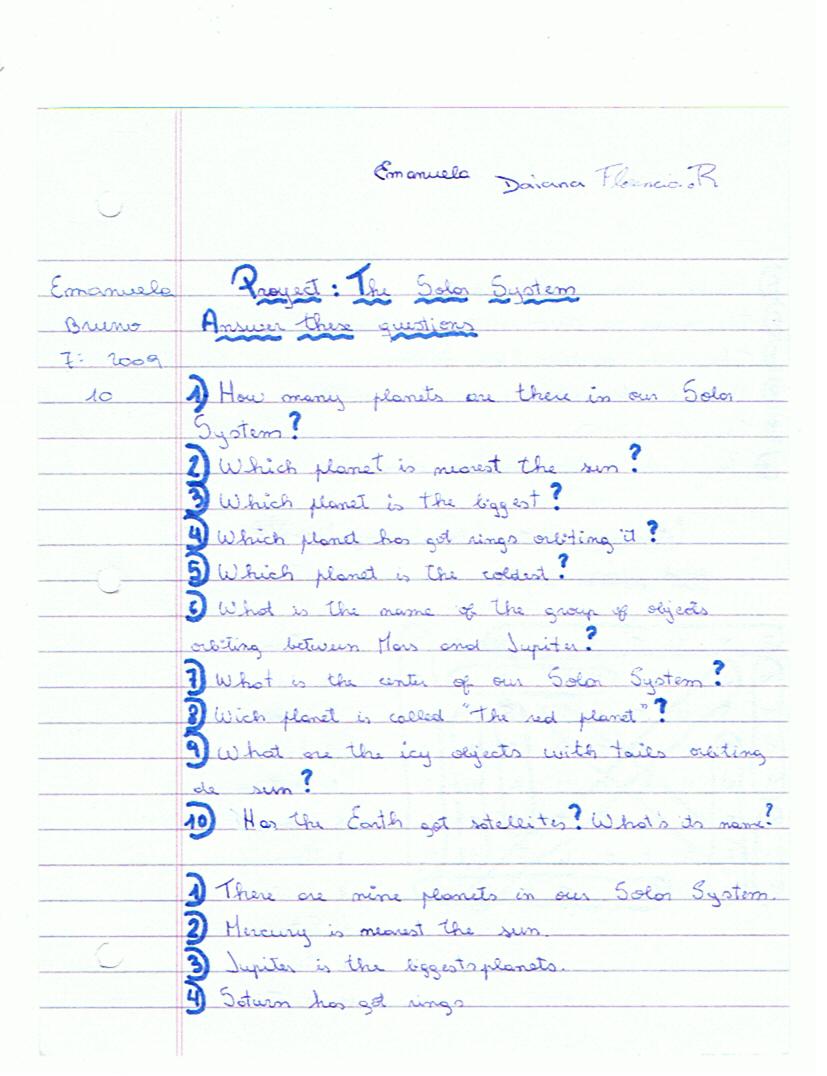 Emanuela Daiana Florencia.R
Emanuela
Bruno
7: 2009
10
Proyect: The Solar System
Answer these questions
1) How many planets are there in our Solar
System?
2) Which planet is nearest the sun?
3) Which planet is the biggest?
4) Which planet has got rings orbiting it?
5) Which planet is the coldest?
6) What is the name of the group of objects
orbiting between Mars and Jupiter?
7) What is the center of our Solar System?
8) Wich planet is called "The red planet"?
9) What are the icy objects with tails orbiting
de sun?
10) Has the Earth got satellites? What's its name?
1) There are nine planets in our Solar System.
2) Mercury is nearest the sun.
3) Jupiter is the biggests planets.
4) Saturn has got rings